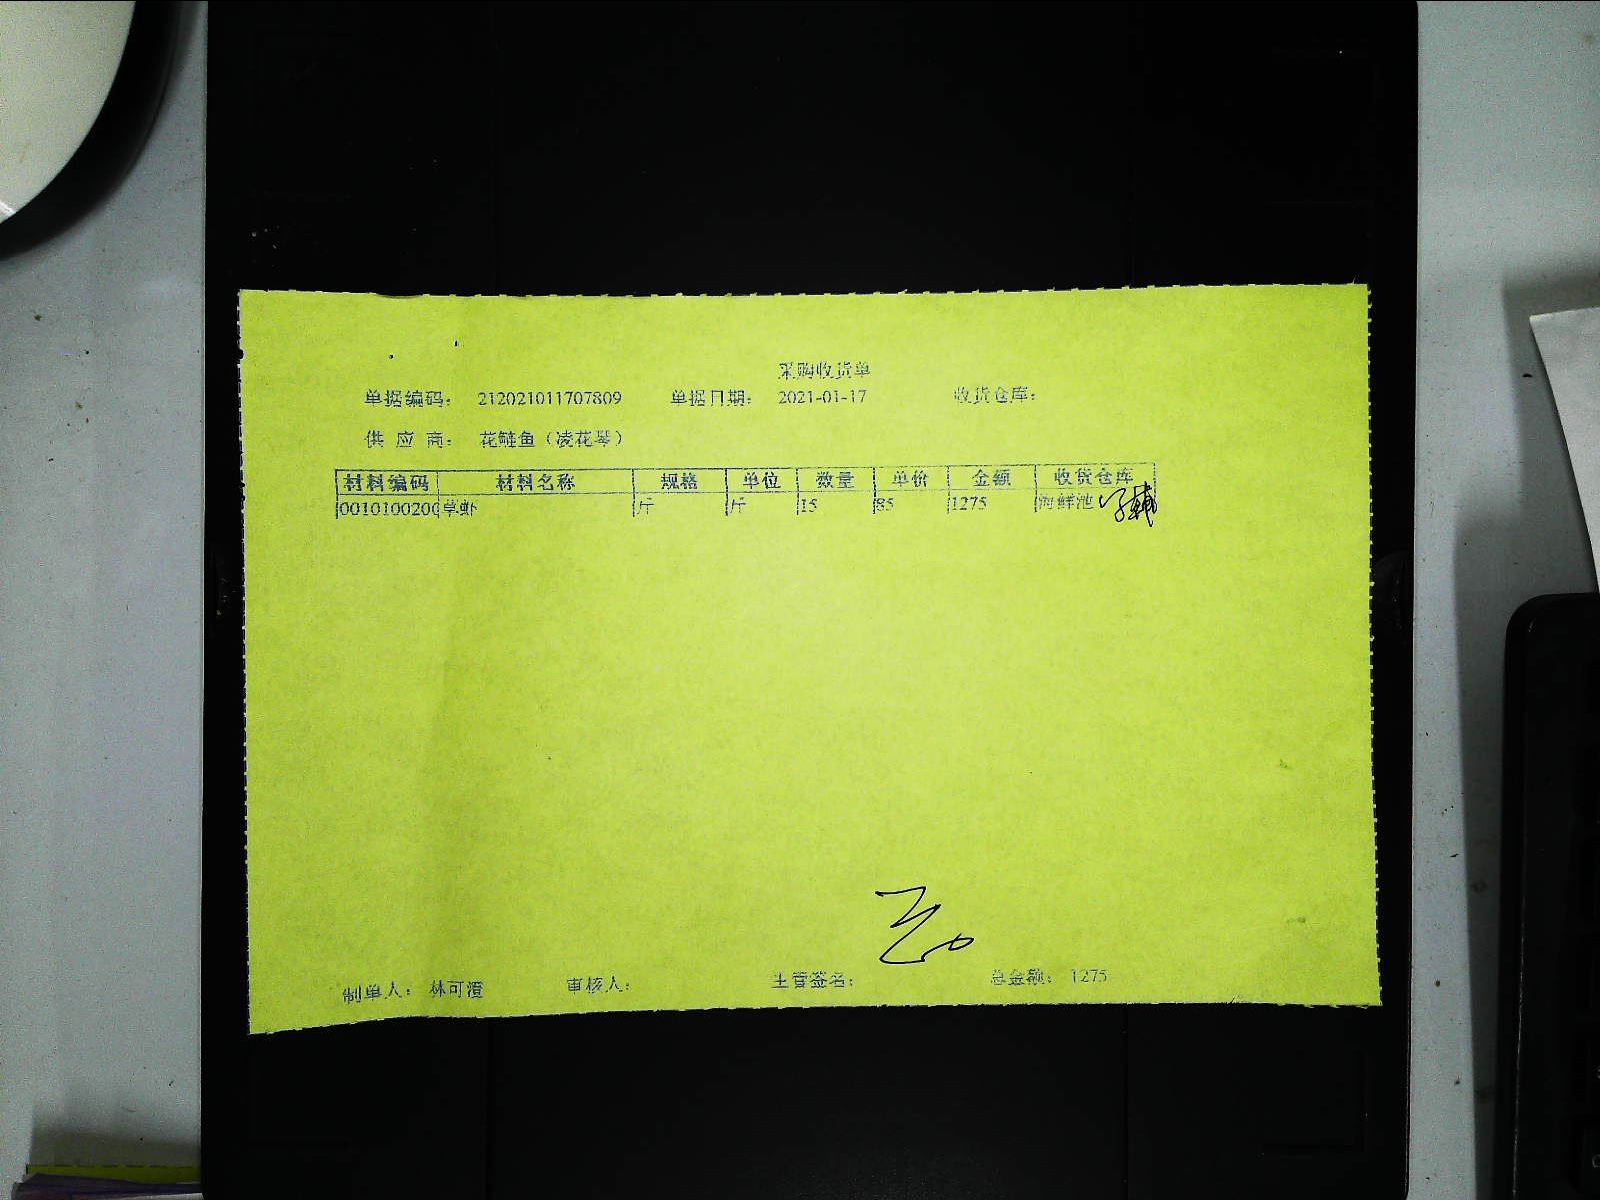 采购收货单
单据编码： 212021011707809 单据日期： 2021-01-17 收货仓库：
供 应 商： 花鲢鱼（凌花琴）
材料编码 材料名称 规格 单位 数量 单价 金额 收货仓库
0010100200 草虾 斤 斤 15 85 1275 海鲜池
制单人： 林可澄 审核人： 主管签名： 总金额： 1275